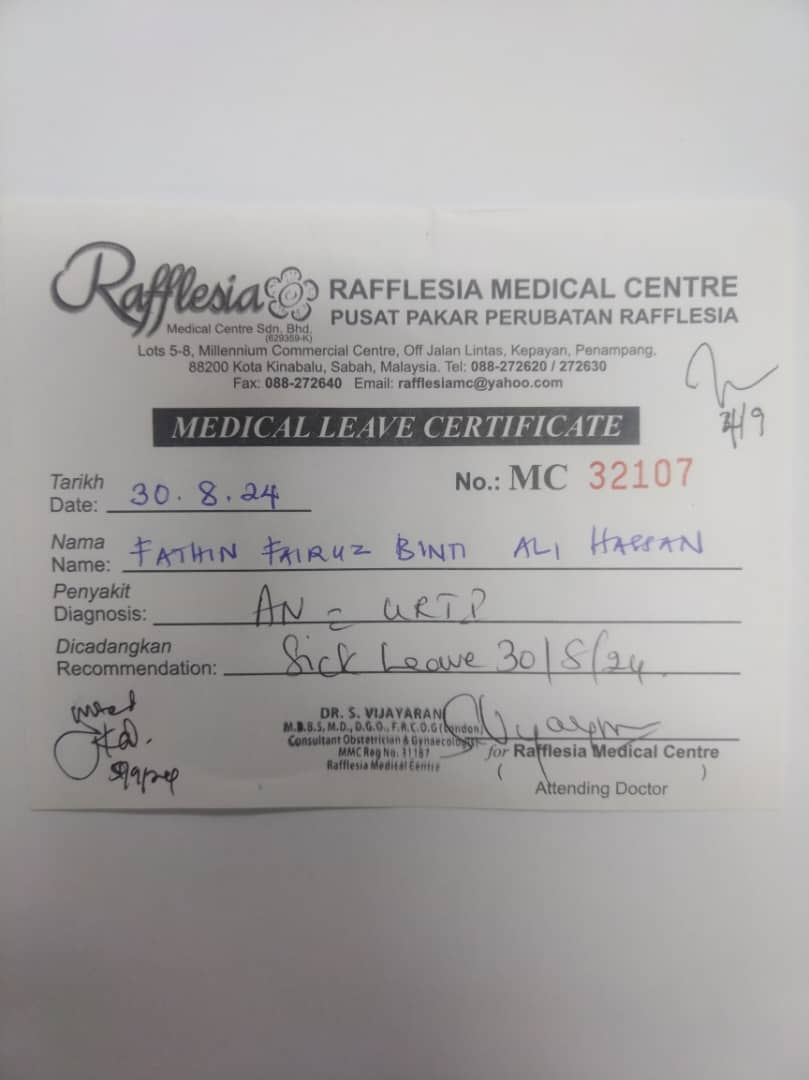 Rafflesia
Medical Centre Sdn. Bhd.
(629359-K)
RAFFLESIA MEDICAL CENTRE
PUSAT PAKAR PERUBATAN RAFFLESIA
Lots 5-8, Millennium Commercial Centre, Off Jalan Lintas, Kepayan, Penampang,
88200 Kota Kinabalu, Sabah, Malaysia. Tel: 088-272620 / 272630
Fax: 088-272640 Email: rafflesiamc@yahoo.com
MEDICAL LEAVE CERTIFICATE
No.: MC 32107
Tarikh
Date: 30.8.24
Nama
Name: FATHIN FAIRUZ BINTI ALI HASSAN
Penyakit
Diagnosis: AN
Dicadangkan
Recommendation: Sick Leave 30/8/24.
DR. S. VIJAYARAN
M.B.B.S, M.D., D.G.O., F.R.C.O.G (London)
Consultant Obstetrician & Gynaecologist
MMC Reg No. 31187
Rafflesia Medical Centre
for Rafflesia Medical Centre
( )
Attending Doctor